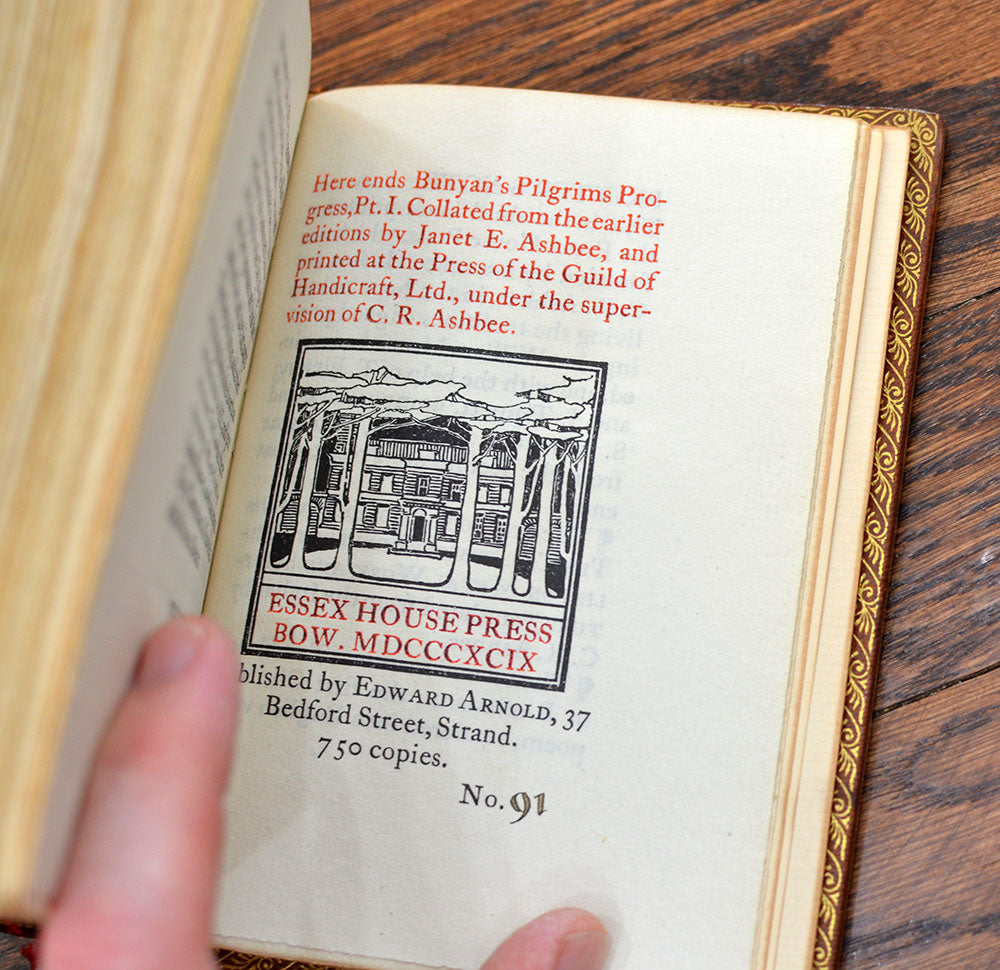 Here ends Bunyan's Pilgrims Pro-
gress, Pt. I. Collated from the earlier
editions by Janet E. Ashbee, and
printed at the Press of the Guild of
Handicraft, Ltd., under the super-
vision of C. R. Ashbee.
ESSEX HOUSE PRESS
BOW. MDCCCXCIX
blished by EDWARD ARNOLD, 37
Bedford Street, Strand.
750 copies.
No. 91